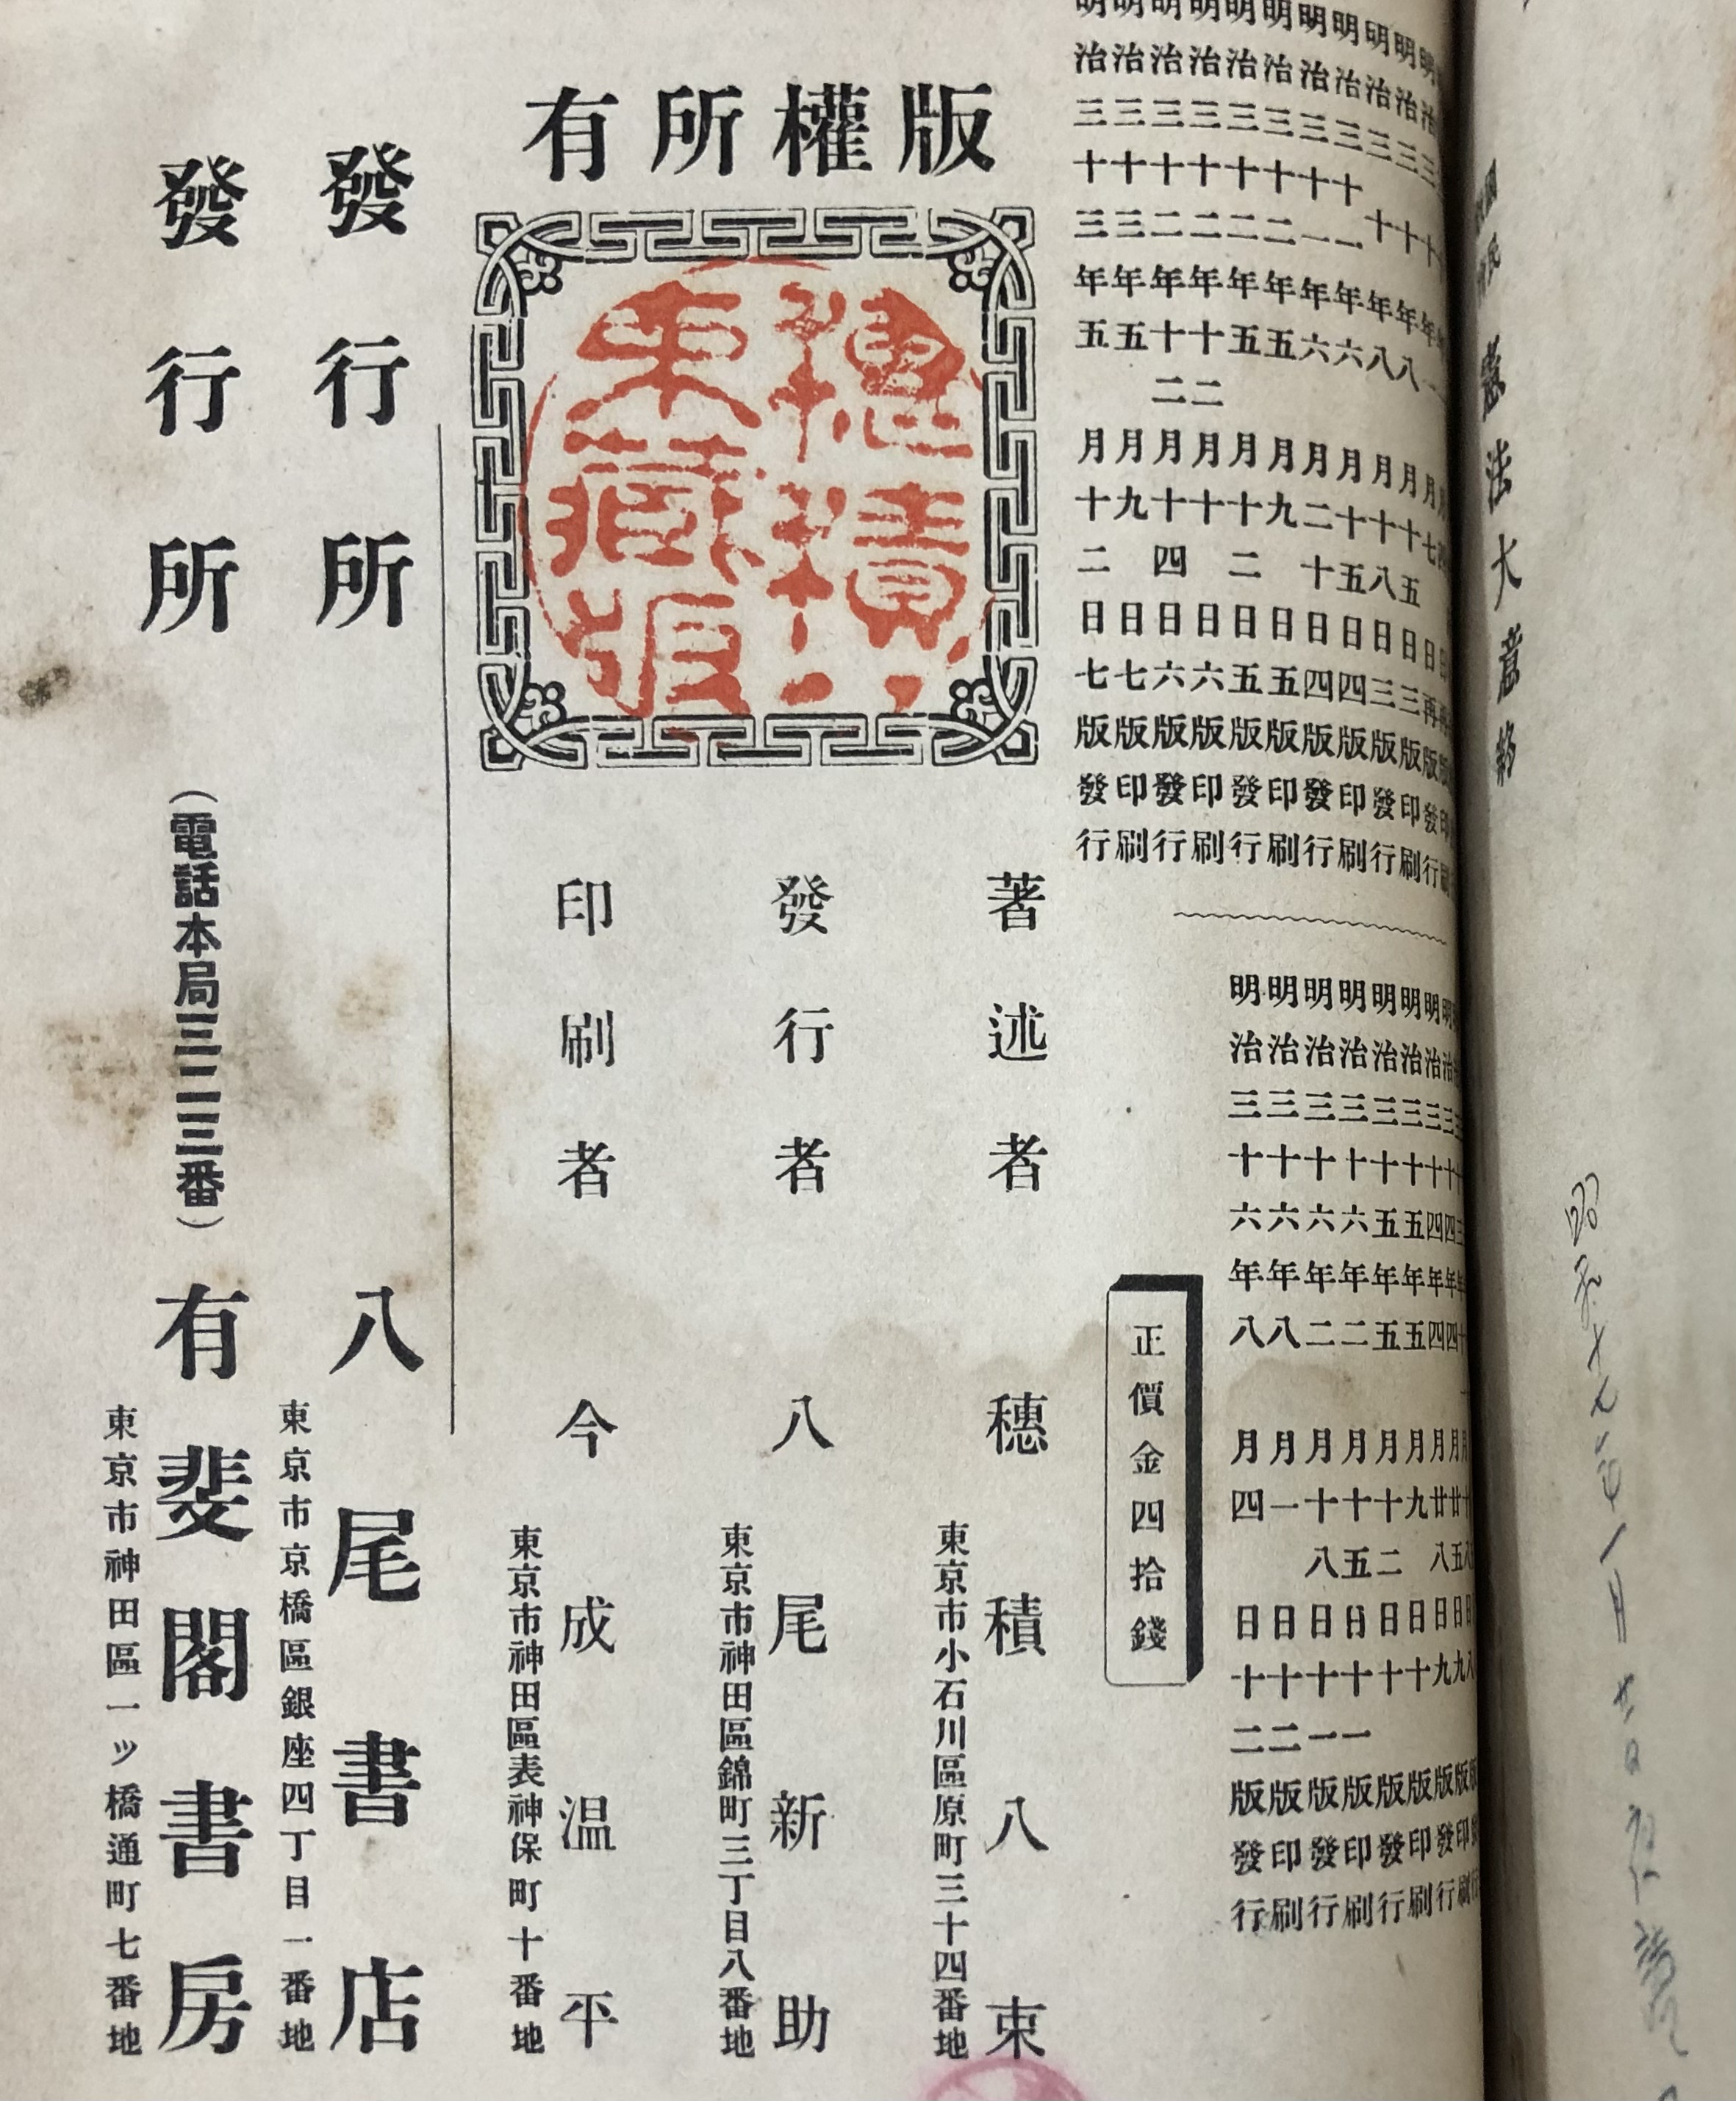 憲法大意終
明治三十年八月十五日三版印刷
明治三十年八月十八日三版發行
明治三十一年六月十五日四版印刷
明治三十一年六月二十日四版發行
明治三十二年五月九日五版印刷
明治三十二年五月十二日五版發行
明治三十二年十二月十日六版印刷
明治三十二年十二月十四日六版發行
明治三十三年五月九日七版印刷
明治三十三年五月十二日七版發行
明治三十四年四月廿五日九版印刷
明治三十四年四月廿八日九版發行
明治三十五年五月九日十版印刷
明治三十五年五月十二日十版發行
明治三十六年二月十五日十一版印刷
明治三十六年二月十八日十一版發行
明治三十六年八月一日十二版印刷
明治三十六年八月四日十二版發行
正價金四拾錢
版權所有
穗積八
束藏版
著述者 穗積八束
東京市小石川區原町三十四番地
發行者 八尾新助
東京市神田區錦町三丁目八番地
印刷者 今成温平
東京市神田區表神保町十番地
發行所 八尾書店
東京市京橋區銀座四丁目一番地
發行所 (電話本局三二三番) 有斐閣書房
東京市神田區一ッ橋通町七番地